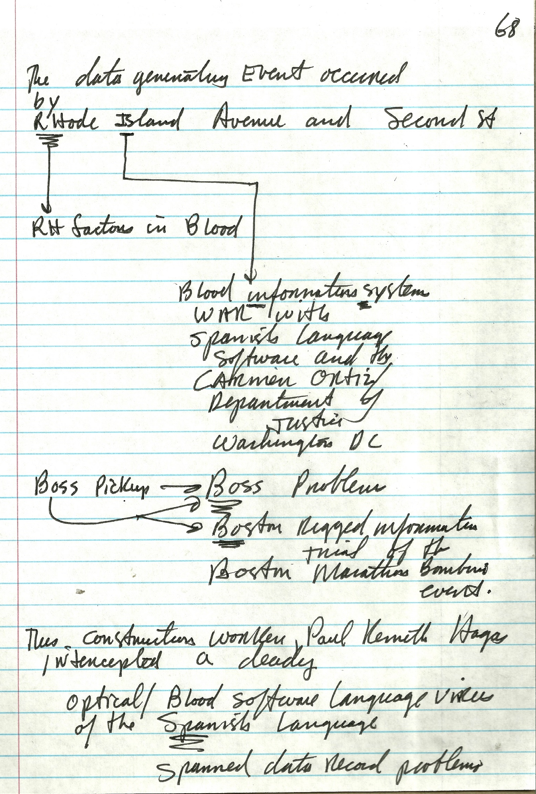 68
The data generating Event occurred
by
RHode Island Avenue and Second St
RH factors in Blood
Blood information system
WAR with
Spanish Language
Software and the
CARmen Ortiz/
Department of
Justice
Washington DC
Boss Pickup → Boss Problem
Boston Rigged information
trial of the
Boston Marathon Bombing
event.
Thus, construction worker, Paul Kenneth Hagn
intercepted a deadly
optical/Blood software language virus
of the Spanish Language
Spanned data record problems